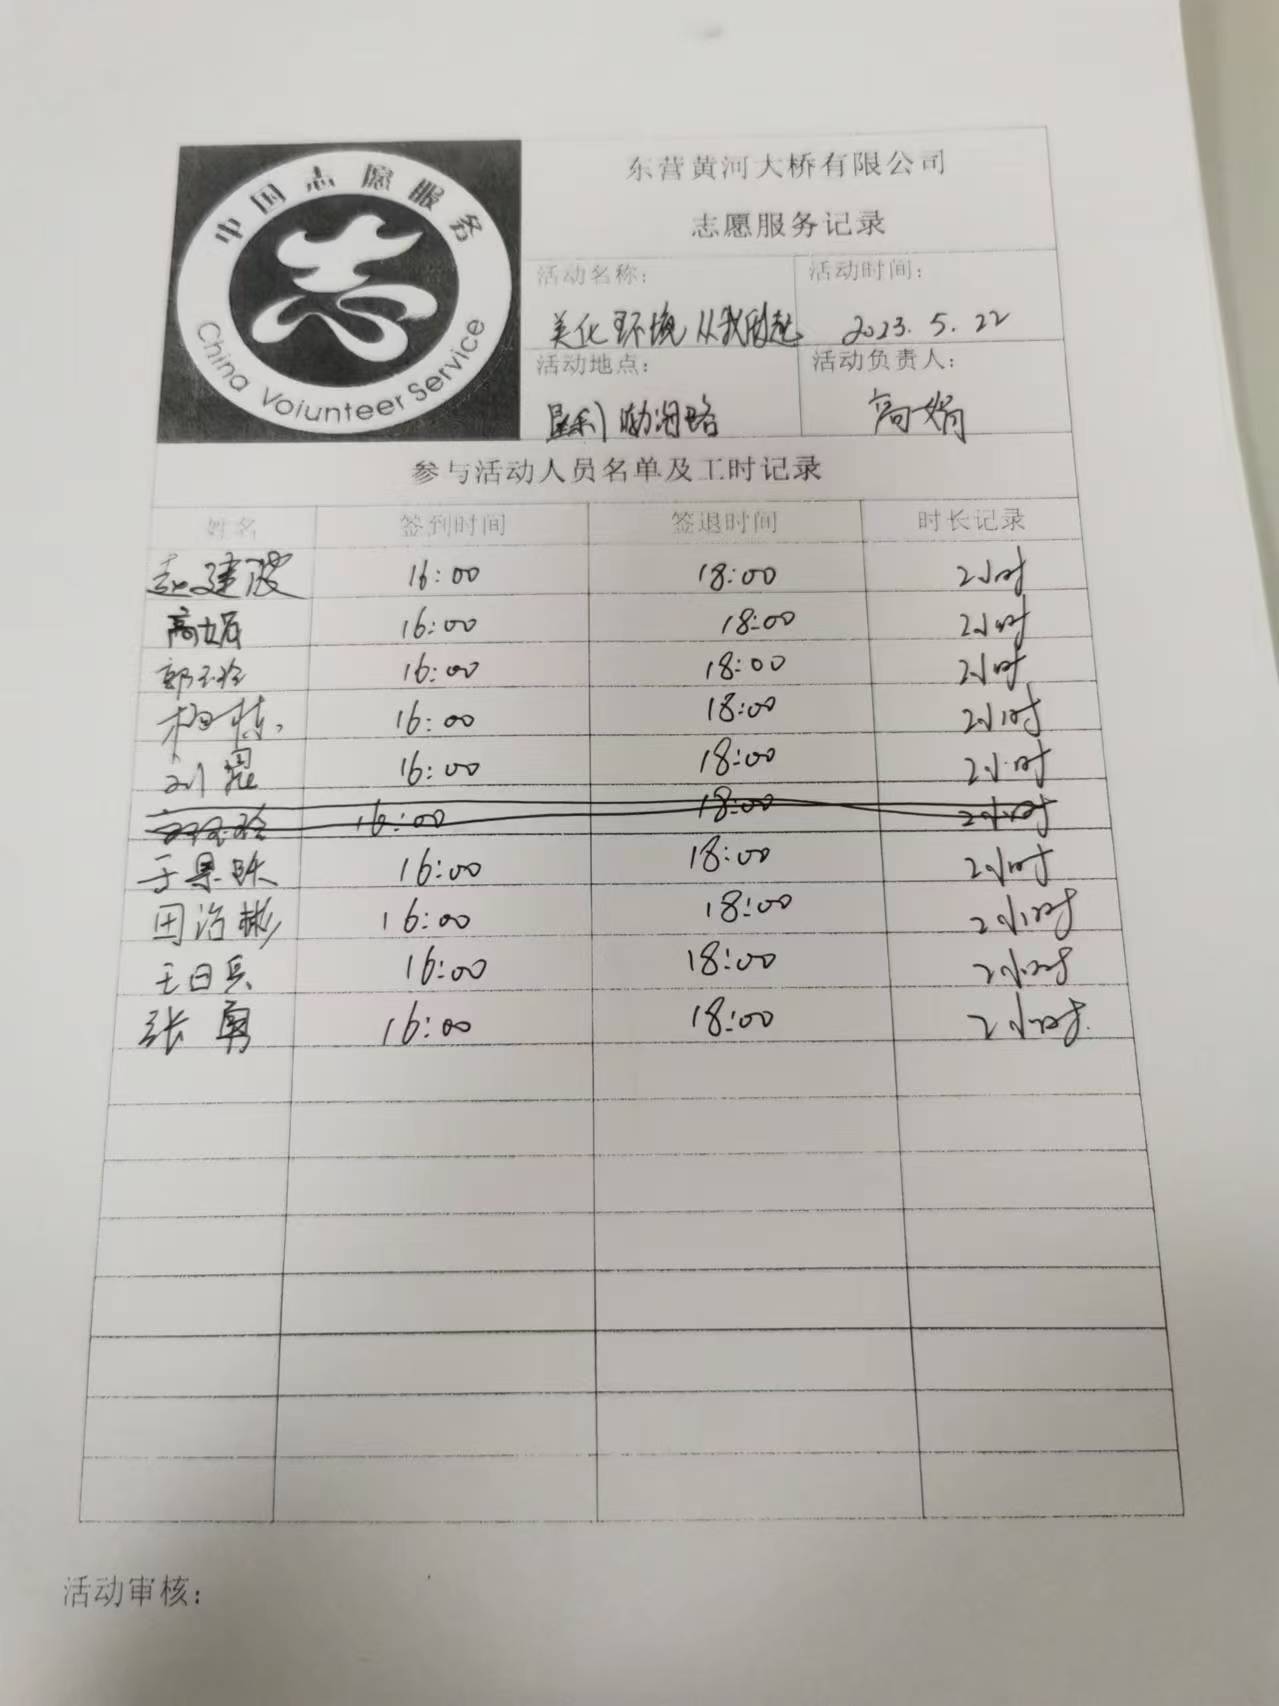 中国志愿服务
China Voiunteer Service
东营黄河大桥有限公司
志愿服务记录
活动名称： 活动时间：
美化环境 从我做起 2023.5.22
活动地点： 活动负责人：
垦利 渤海路 高娟
参与活动人员名单及工时记录
姓名 签到时间 签退时间 时长记录
赵建波 16:00 18:00 2小时
高娟 16:00 18:00 2小时
郭玉玲 16:00 18:00 2小时
杨栋 16:00 18:00 2小时
刘 16:00 18:00 2小时
16:00 18:00 2小时
于景跃 16:00 18:00 2小时
田治彬 16:00 18:00 2小时
王日兵 16:00 18:00 2小时
张勇 16:00 18:00 2小时
活动审核：